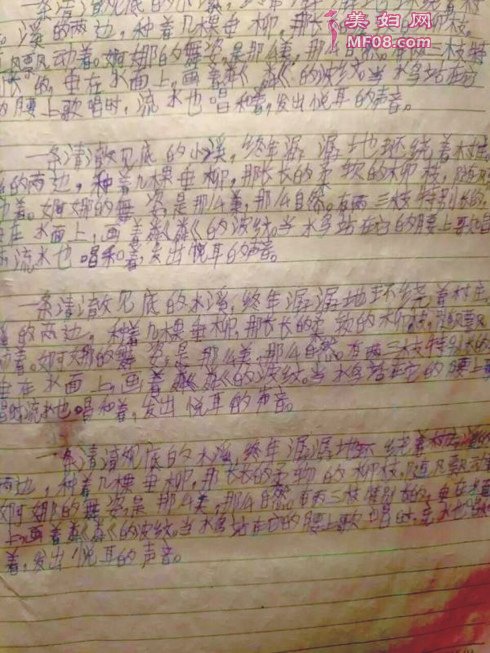 美妇网
MF08.com
一条清澈见底的小溪,终年
溪的两边,种着几棵垂柳,那长长的
飘动着。婀娜的舞姿,是那么美,那么自然。有两三枝特
长的,垂在水面上,画着粼粼的波纹。当水鸟站在它
的腰上歌唱时,流水也唱和着,发出悦耳的声音。
一条清澈见底的小溪,终年潺潺地环绕着村庄。
的两边,种着几棵垂柳,那长长的柔软的柳枝,随风
动着。婀娜的舞姿,是那么美,那么自然。有两三枝特别长的,
在水面上,画着粼粼的波纹。当水鸟站在它的腰上歌唱
流水也唱和着,发出悦耳的声音。
一条清澈见底的水溪,终年潺潺地环绕着村庄
的两边,种着几棵垂柳,那长长的柔软的柳枝,随风飘
动着。婀娜的舞姿,是那么美,那么自然。有两三枝特别长的
垂在水面上,画着粼粼的波纹。当水鸟站在它的腰上歌
唱时流水也唱和着,发出悦耳的声音。
一条清清见底的水溪,终年潺潺地环绕着村庄
两边,种着几棵垂柳,那长长的柔物的柳枝,随风飘动
婀娜的舞姿,是那么美,那么自然。有两三枝特别长的,垂在水面
上,画着粼粼的波纹。当水鸟站在它的腰上歌唱时,流水也唱和
着,发出悦耳的声音。